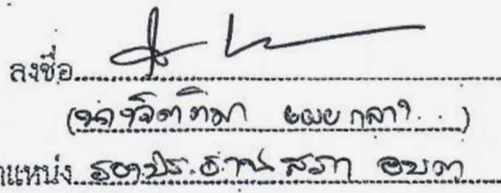 ลงชื่อ
(นางจิตติมา เผย กลาง)
ตำแหน่ง รองประธานสภา อบต